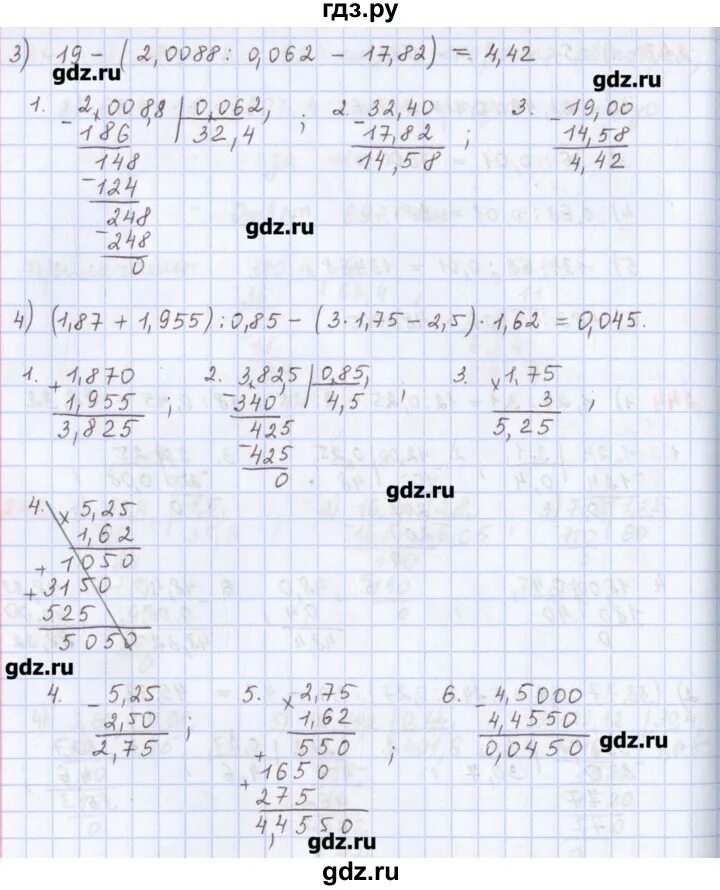 гдз.ру
3) 19 - (2,0088 : 0,062 - 17,82) = 4,42
gdz.ru
gdz.ru
1. - 2,0088, | 0,062, ; 2. - 32,40 ; 3. - 19,00
186 32,4 17,82 14,58
148 14,58 4,42
- 124
248
- 248
gdz.ru
0
4) (1,87 + 1,955) : 0,85 - (3 · 1,75 - 2,5) · 1,62 = 0,045.
1. + 1,870 ; 2. - 3,825 | 0,85, ; 3. × 1,75 ;
1,955 340 4,5 3
3,825 425 5,25
- 425
0
gdz.ru
4. × 5,25
1,62
+ 1050
+ 3150
525
5050
gdz.ru
4. - 5,25 ; 5. × 2,75 ; 6. - 4,5000
2,50 1,62 4,4550
2,75 550 0,0450
gdz.ru
+ 1650
+ 275
4,4550
gdz.ru
гдз.ру